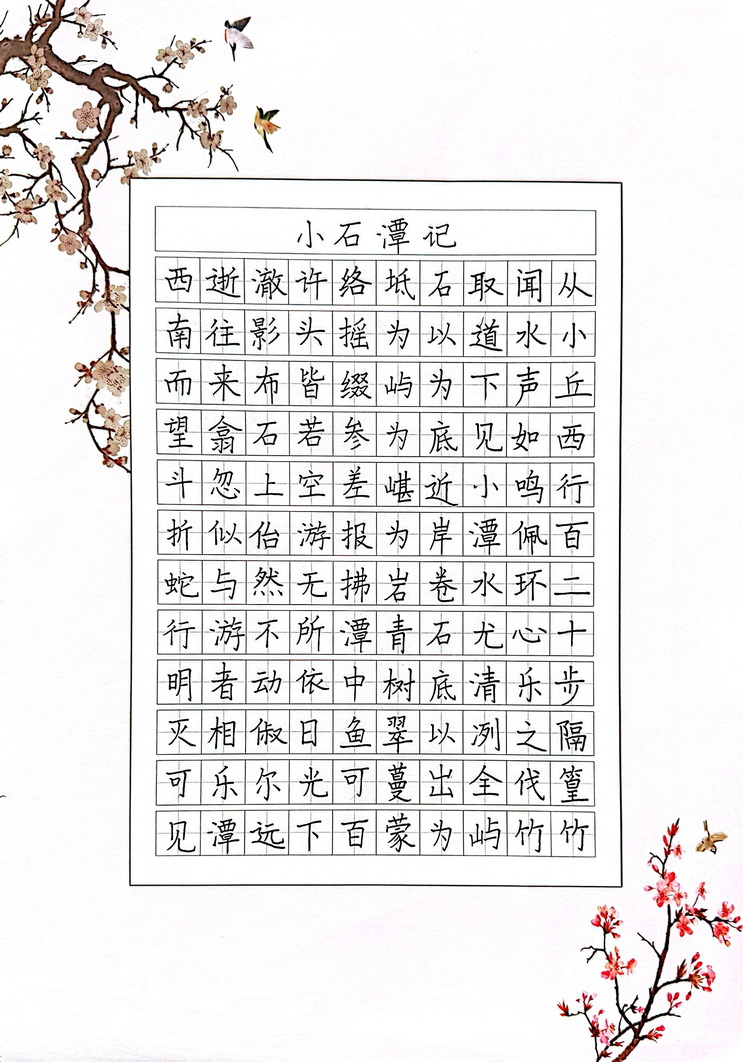 小石潭记
从小丘西行百二十步隔篁竹
闻水声如鸣佩环心乐之伐竹
取道下见小潭水尤清洌全屿
石以为底近岸卷石底以出为
坻为屿为嵁为岩青树翠蔓蒙
络摇缀参差报拂潭中鱼可百
许头皆若空游无所依日光下
澈影布石上佁然不动俶尔远
逝往来翕忽似与游者相乐潭
西南而望斗折蛇行明灭可见